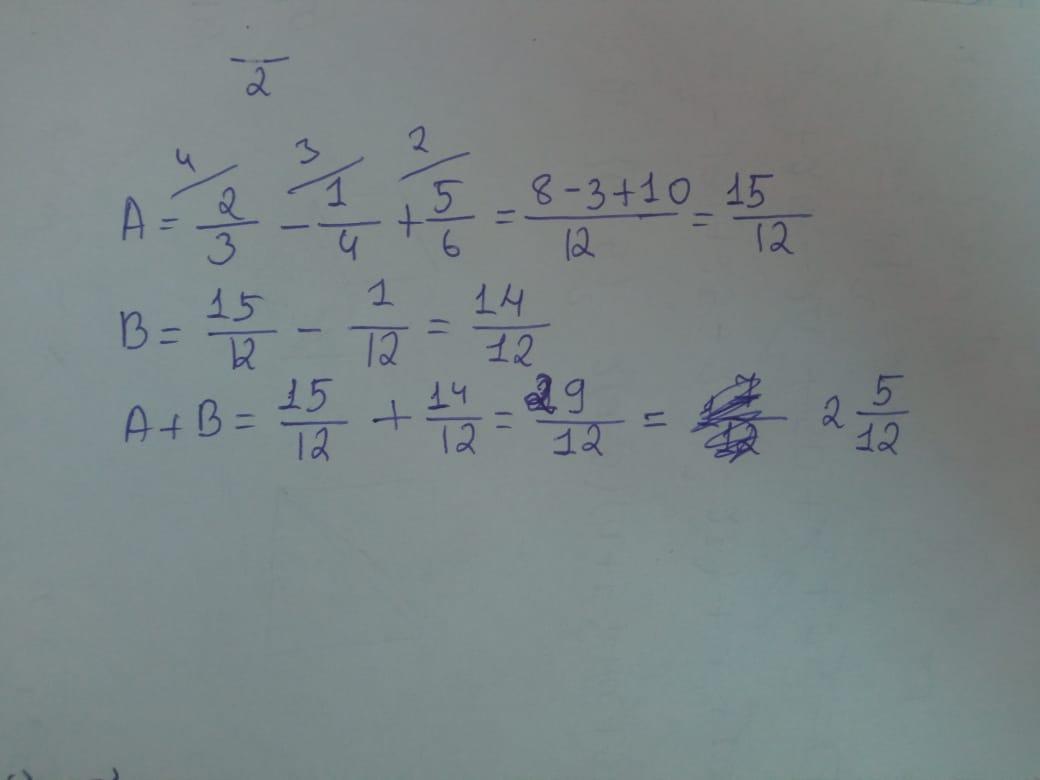 2
4 3 2
A = 2/3 - 1/4 + 5/6 = 8-3+10/12 = 15/12
B = 15/12 - 1/12 = 14/12
A+B = 15/12 + 14/12 = 29/12 = 2 5/12